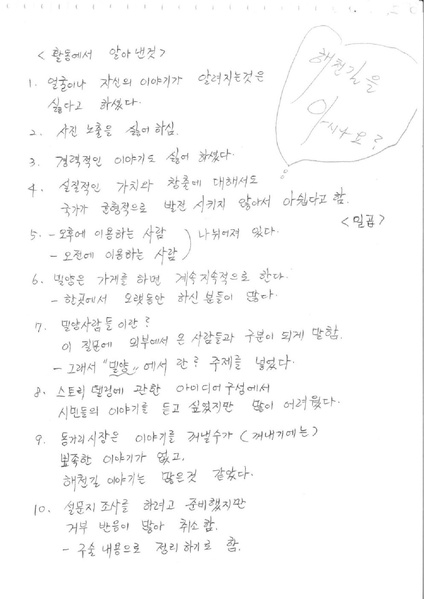 해천길을
아시나요?
<활동에서 알아낸것>
1. 얼굴이나 자신의 이야기가 알려지는것은
싫다고 하셨다.
2. 사진 노출을 싫어 하심.
3. 경력적인 이야기도 싫어 하셨다.
4. 실질적인 가치와 창출에 대해서도
국가가 균형적으로 발전 시키지 않아서 아쉽다고 함.
<밀곱>
5. - 오후에 이용하는 사람
- 오전에 이용하는 사람 ) 나뉘어져 있다.
6. 밀양은 가게를 하면 계속 지속적으로 한다.
- 한곳에서 오랫동안 하신 분들이 많다.
7. 밀양사람들 이란?
이 질문에 외부에서 온 사람들과 구분이 되게 말함.
- 그래서 "밀양" 에서 란? 주제를 넣었다.
8. 스토리 텔링에 관한 아이디어 구성에서
시민들의 이야기를 듣고 싶었지만 많이 어려웠다.
9. 용가리시장은 이야기를 꺼낼수가 (꺼내기에는)
뾰족한 이야기가 없고,
해천길 이야기는 많은것 같았다.
10. 설문지 조사를 하려고 준비했지만
거부 반응이 많아 취소함.
- 구술 내용으로 정리 하기로 함.